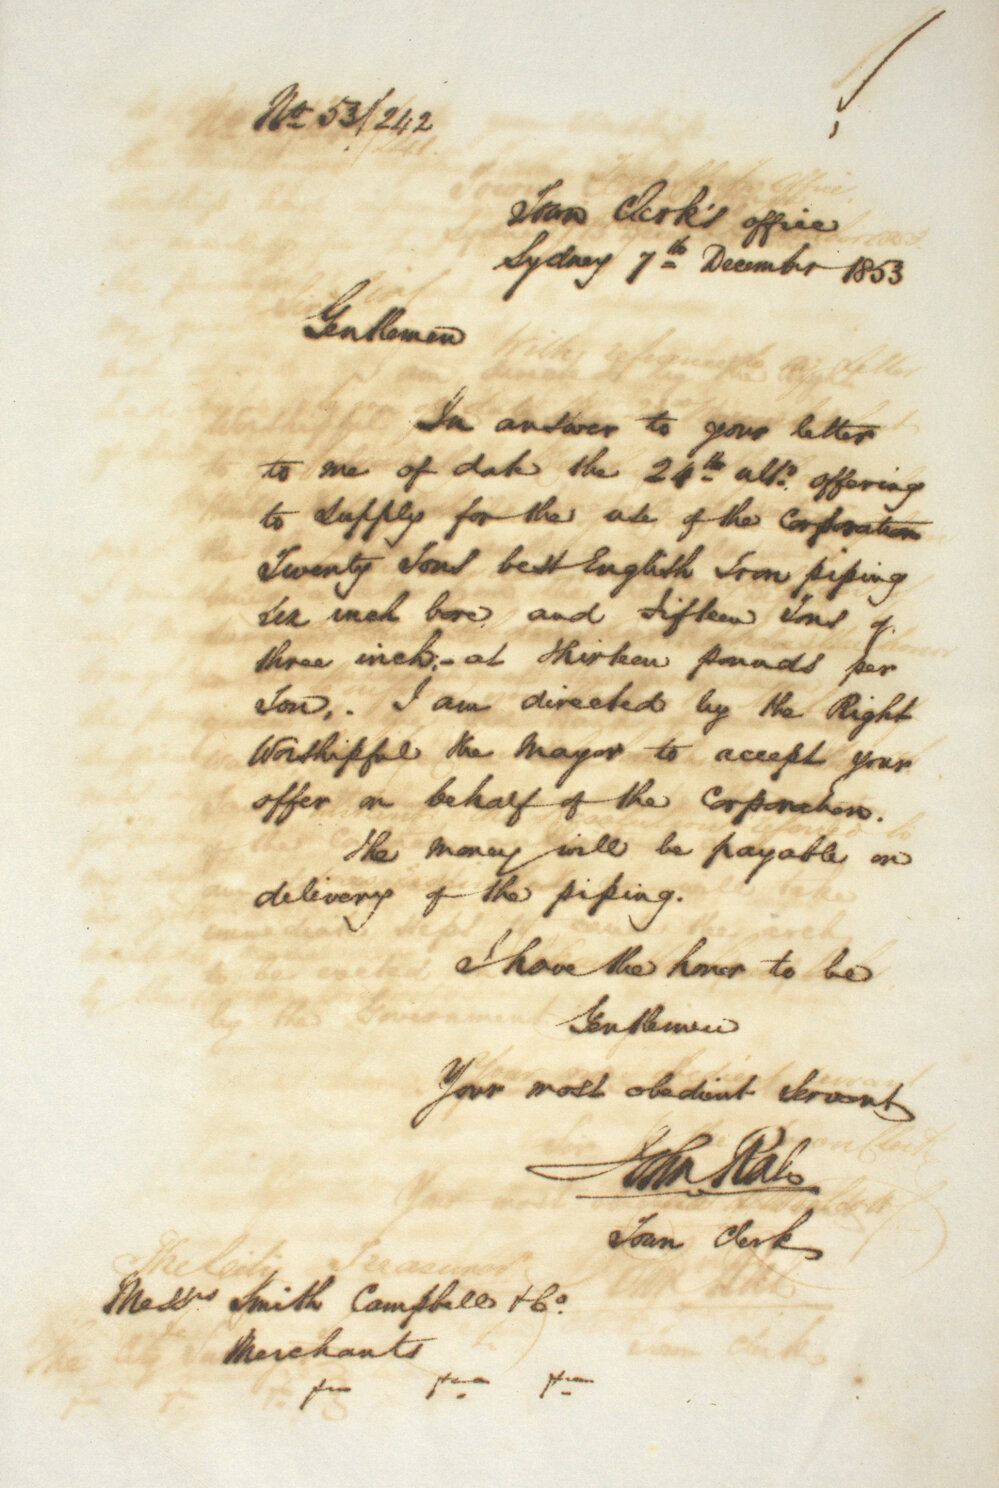 No 53/242
Town Clerk's office
Sydney 7th December 1853
Gentlemen
In answer to your letter
to me of date the 24th ulto. offering
to supply for the use of the Corporation
Twenty Tons best English Iron piping
six inch bore and fifteen Tons of
three inch;- at thirteen pounds per
Ton,. I am directed by the Right
Worshipful the Mayor to accept your
offer on behalf of the Corporation.
The money will be payable on
delivery of the piping.
I have the honor to be
Gentlemen
Your most obedient Servant
John Rae
Town Clerk
Messrs Smith Campbell & Co.
Merchants